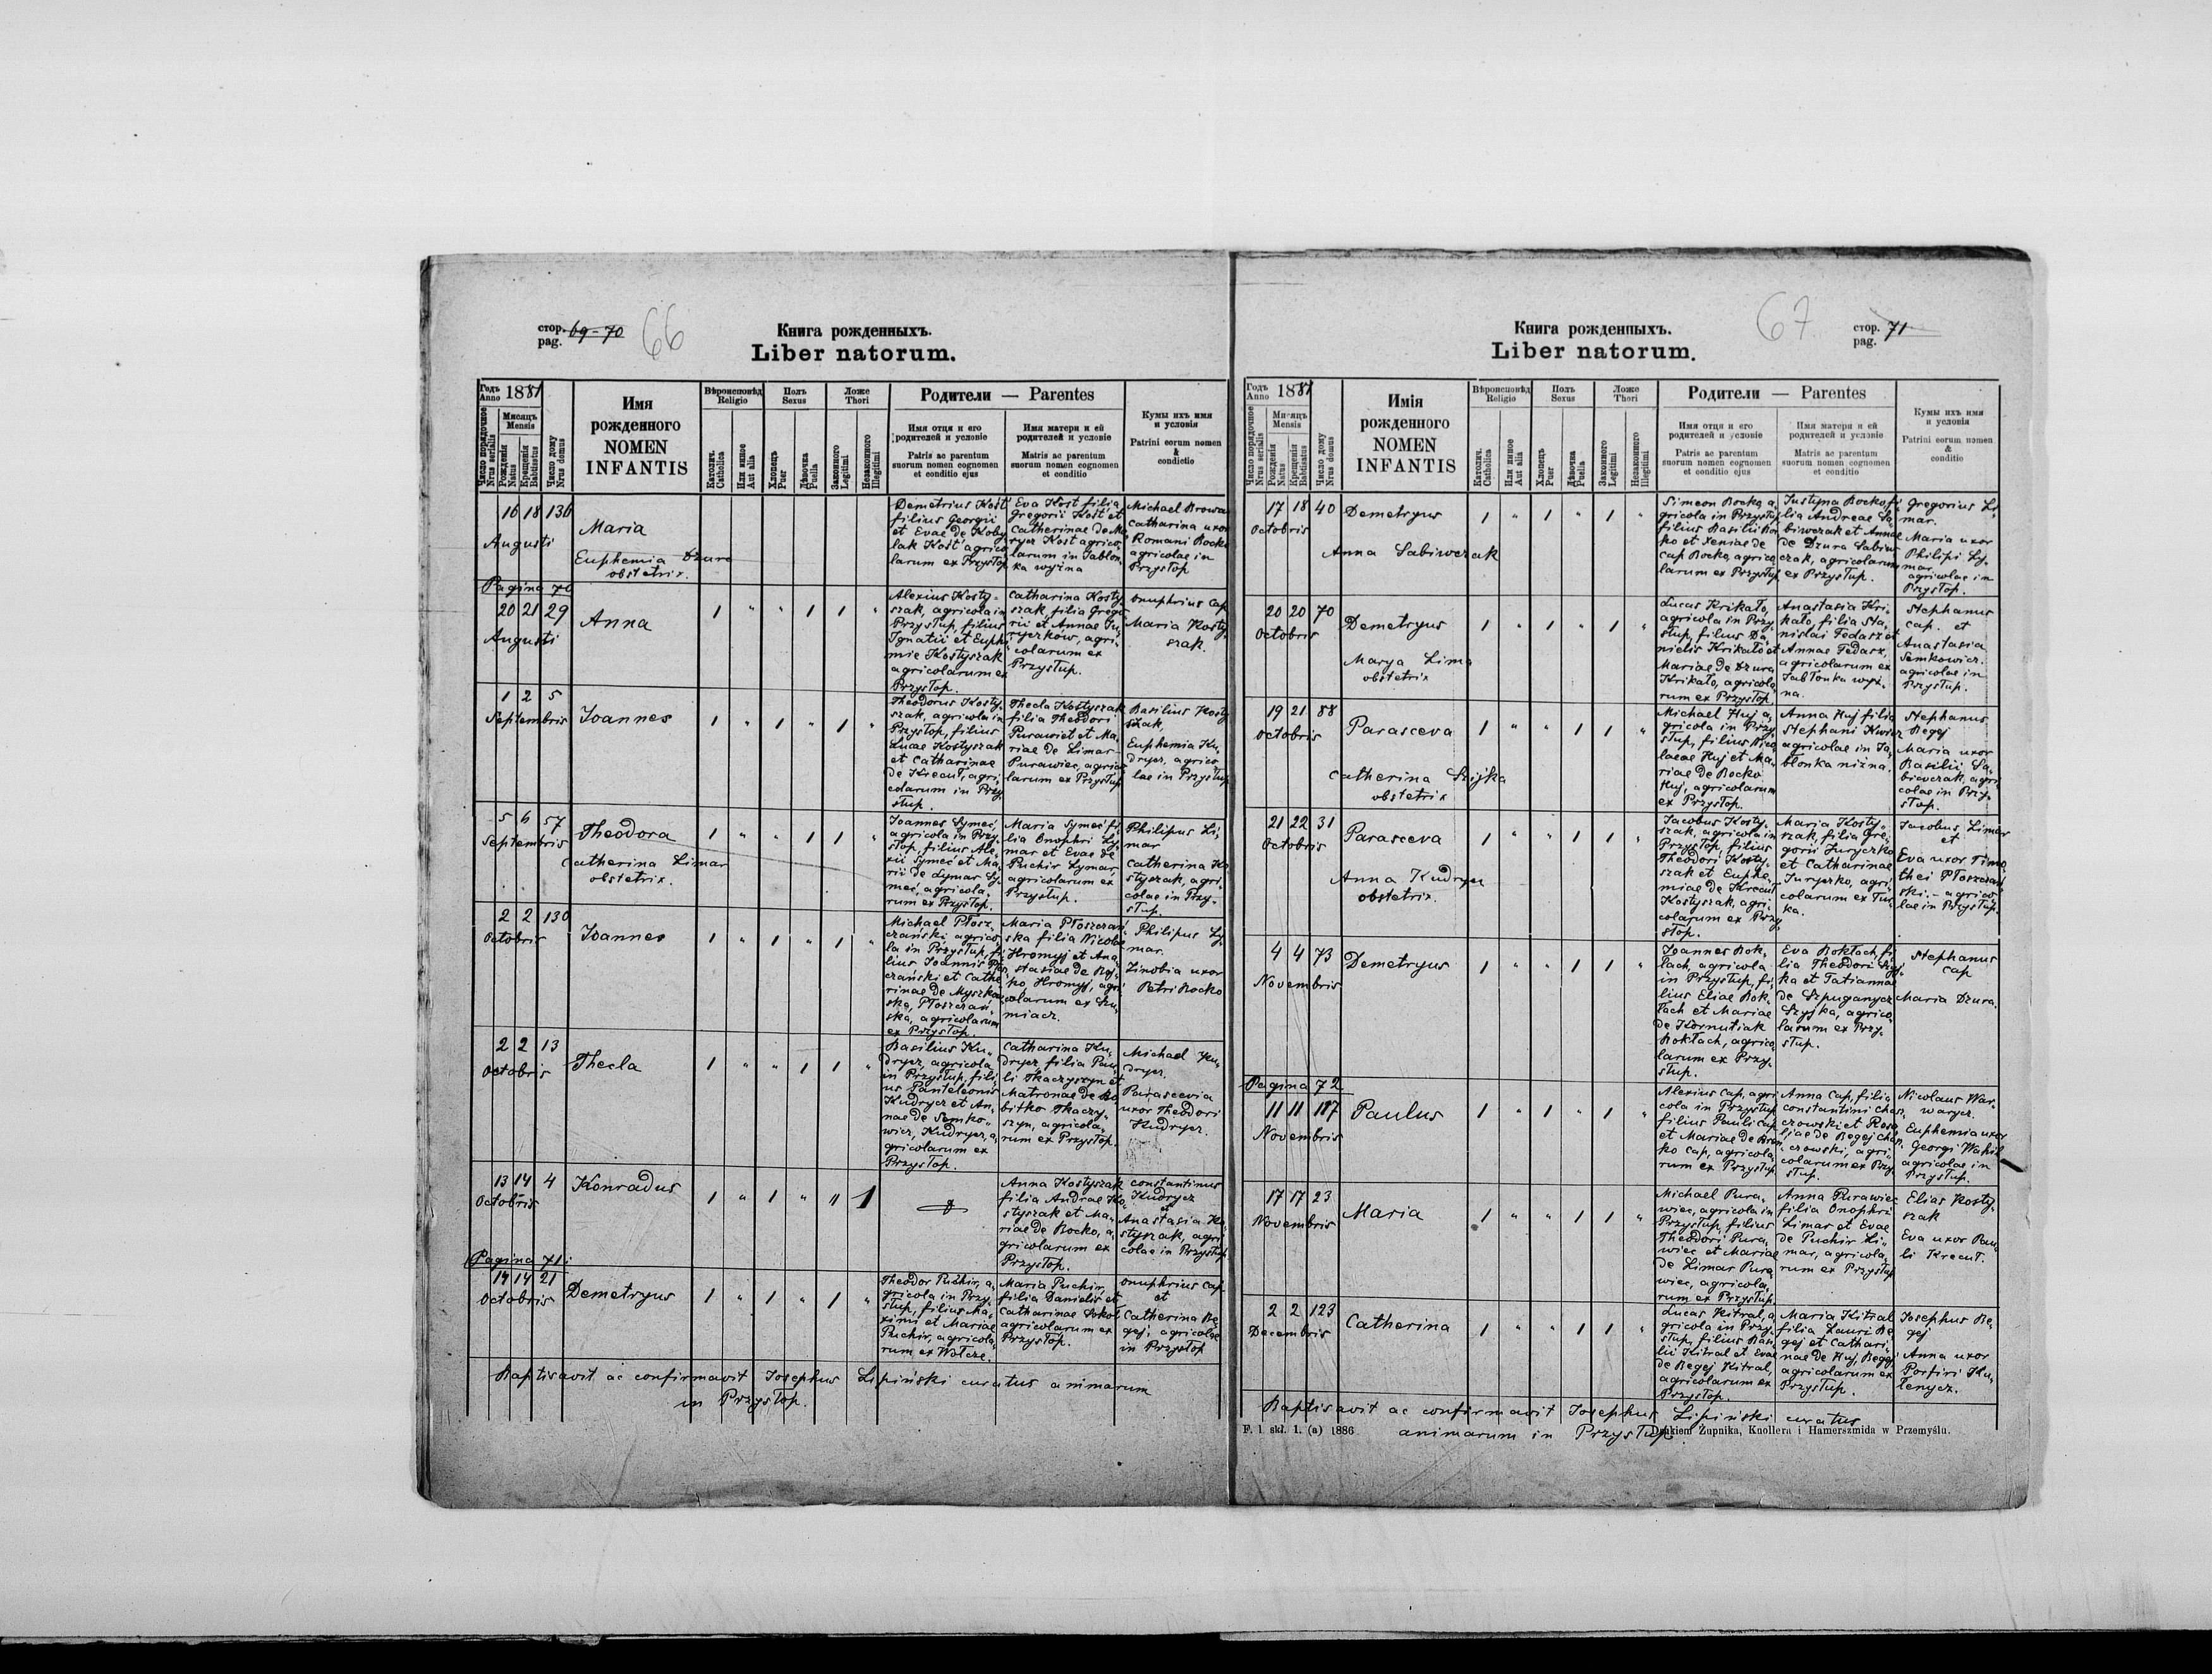 стор. 69-70
pag.
66
Книга рожденныхъ.
Liber natorum.
Годъ Anno 1881
Число порядочное Nrus serialis
Мѣсяць Mensis
Рожденія Natus
Крещенія Babtisatus
Число дому Nrus domus
Имя рожденного
NOMEN INFANTIS
Вѣроисповѣд. Religio
Католич. Catholica
Или инное Aut alia
Полъ Sexus
Хлопець Puer
Дѣвочка Puella
Ложе Thori
Законного Legitimi
Незаконного Illegitimi
Родители — Parentes
Имя отця и его родителей и условіе
Patris ac parentum suorum nomen cognomen et conditio ejus
Имя матери и ей родителей и условіе
Matris ac parentum suorum nomen cognomen et conditio
Кумы ихъ имя и условія
Patrini eorum nomen & condictio
16 18 136
Augusti
Maria
Euphemia Dzura
obstetrix.
Demetrius Kost
filius Georgii
et Evae de Koby
lak Kost agrico
larum ex Przystop
Eva Kost filia
Gregorii Kost et
Catherinae de Ma
rycz Kost agrico,
larum in Jablon
ka wyżna
Michael Browa
Catharina uxor
Romani Bocko
agricolae in
Przystop
Pagina 70
20 21 29
Augusti
Anna
1 " " 1 1 "
Alexius Kosty-
szak, agricola in
Przystup, filius
Ignatii et Euph
mie Kostyszak
agricolarum ex
Przystop.
Catharina Kosty
szak, filia Grego
rii et Annae Ju
ryczkow, agri-
colarum ex
Przystup.
Onuphrius Cap
Maria Kosty
szak.
1 2 5
Septembris
Joannes
1 " 1 " 1 "
Theodorus Kosty-
szak, agricola in
Przystop, filius
Lucae Kostyszak
et Catharinae
de KrecuT, agri
colarum in Przy
stup.
Thecla Kostyszak
filia Theodori
Purawiet et Ma
riae de Limar
Purawiec, agrico
larum ex Przystup
Basilius Kosty
szak,
Euphemia Ku,
drycz, agrico
lae in Przystup
5 6 57
Septembris
Theodora
Catherina Limar
obstetrix.
1 " " 1 1 "
Joannes Symeć,
agricola in Przy
stop, filius Ale
xii Symeć et Ma
rii de Lymar Sy
meć, agricola
rum ex Przystop.
Maria Symeć fi
lia Onophri Ly
mar et Evae de
Puchir Lymar,
agricolarum ex
Przystup.
Philipus Li,
mar
Catherina Ko
styszak, agri
colae in Przy-
stup.
2 2 130
Octobris
Joannes
1 " 1 " 1 "
Michael Płosz-
czański agrico,
la in Przystup, fi
lius Joannis Pło
czański et Cathe
rinae de Myszkow
ska, Płoszczań
ska, agricolarum
ex Przystop.
Maria Płoszczań
ska filia Nicolae
Hromyj et Ana
stasiae de Boj
ko Hromyj, agri
colarum ex Szu
miacz.
Philipus Ly
mar.
Zinobia uxor
Petri Bocko
2 2 13
Octobris
Thecla
1 " " 1 1 "
Basilius Ku-
drycz, agricola
in Przystup, fili
us Panteleonis
Kudrycz et An
nae de Semko-
wicz, Kudrycz, a
gricolarum ex
Przystop.
Catharina Ku-
drycz, filia Pau
li Tkaczyszyn et
Matronae de Bo
bitko Tkaczy-
szyn, agricola
rum ex Przystop.
Michael Ku
drycz.
Parascevia
uxor Theodori
Kudrycz.
13 14 4
Octobris
Konradus
1 " 1 " " 1
Anna Kostyszak
filia Andrae Ko
styszak et Ma-
riae de Bocko, a
gricolarum ex
Przystop.
Constantinus
Kudrycz
et
Anastasia Ko
styszak, agri
colae in Przystup
Pagina 71:
14 14 21
Octobris
Demetryus
1 " 1 " 1 "
Theodor Puchir, a
gricola in Przy
stup, filius Ma
ximi et Mariae
Puchir, agricola
rum ex Wołcze.
Maria Puchir,
filia Danielis et
Catharinae Sokol
agricolarum ex
Przystop.
Onuphrius Cap
et
Catherina Be
gej, agricolae
in Przystop
Baptisavit ac confirmavit Josephus Lipiński curatus animarum
in Przystop.
Книга рожденныхъ.
Liber natorum.
67
стор. 71
pag.
Годъ Anno 1881
Число порядочное Nrus serialis
Мѣсяць Mensis
Рожденія Natus
Крещенія Babtisatus
Число дому Nrus domus
Имія рожденного
NOMEN INFANTIS
Вѣроисповѣд. Religio
Католич. Catholica
Или инное Aut alia
Полъ Sexus
Хлопець Puer
Дѣвочка Puella
Ложе Thori
Законного Legitimi
Незаконного Illegitimi
Родители — Parentes
Имя отця и его родителей и условіе
Patris ac parentum suorum nomen cognomen et conditio ejus
Имя матери и ей родителей и условіе
Matris ac parentum suorum nomen cognomen et conditio
Кумы ихъ имя и условія
Patrini eorum nomen & conditio
17 18 40
Octobris
Demetryus
Anna Sabiwczak
1 " 1 " 1 "
Simeon Bocko, a
gricola in Przystup
filius Basilii Boc
ko et Xeniae de
Cap Bocko, agrico
larum ex Przystup
Justyna Bocko, fi
lia Andreae Sa
biwczak et Annae
de Dzura Sabiw
czak, agricolarum
ex Przystup.
Gregorius Li
mar.
Maria uxor
Philipi Ly
mar
agricolae in
Przystop.
20 20 70
Octobris
Demetryus
Marya Lima
obstetrix
1 " 1 " 1 "
Lucas Krikało,
agricola in Przy
stup, filius Da
nielis Krikało et
Mariae de Dzura
Krikało, agricola
rum ex Przystop
Anastasia Kri-
kało, filia Sta
nislai Fedasz et
Annae Fedasz,
agricolarum ex
Jabłonka wyż-
na.
Stephanus
Cap. et
Anastasia
Semkowicz.
agricolae in
Przystup.
19 21 88
Octobris
Parasceva
Catherina Szijka
obstetrix
1 " " 1 1 "
Michael Huj a
gricola in Przy
stup, filius Nico
laeae Huj et Ma
riae de Bocko
Huj, agricolarum
ex Przystop.
Anna Huj filia
Stephani Kwicz
agricolae in Ja
blonka niżna.
Stephanus
Begej
Maria uxor
Basilii Sa
biwczak, agri
colae in Przy-
stop.
21 22 31
Octobris
Parasceva
Anna Kudrycz
obstetrix.
1 " " 1 1 "
Jacobus Kosty-
szak, agricola in
Przystop, filius
Theodori Kosty-
szak et Euphe-
miae de Krecut
Kostyszak, agri-
colarum ex Przy
stop.
Maria Kosty-
szak, filia Gre-
gorii Juryczko
et Catharinae
Juryczko, agri-
colarum ex Tur
ka.
Jacobus Limar
et
Eva uxor Timo
thei Płoszczań
ski.- agrico
lae in Przystup.
4 4 73
Novembris
Demetryus
1 " " 1 1 "
Joannes Bok-
łach, agricola
in Przystup, fi
lius Eliae Bok-
łach et Mariae
de Kornutiak
Bokłach, agrico
larum ex Przy-
stup.
Eva Bokłach, fi
lia Theodori Szyj-
ka et Tatiannae
de Szpuganycz
Szyjka, agrico
larum ex Przy-
stup.
Stephanus
Cap
Maria Dzura.
Pagina 72
11 11 117
Novembris
Paulus
1 " 1 " 1 "
Alexius Cap, agri
cola in Przystup
filius Pauli Cap
et Mariae de Bron
ko Cap, agricola
rum ex Przystup
Anna Cap, filia
Constantini Chas
czowski et Rosa
liae de Begej Chas
czowski, agri-
colarum ex Przy
stup.
Nicolaus War-
warycz.
Euphemia uxor
Georgi Wasil
agricolae in
Przystup.
17 17 23
Novembris
Maria
1 " " 1 1 "
Michael Pura-
wiec, agricola in
Przystup, filius
Theodori Pura-
wiec et Mariae
de Limar Pura
wiec, agricola
rum ex Przystup.
Anna Purawiec
filia Onophri
Limar et Evae
de Puchir Li-
mar, agricola
rum ex Przystup
Elias Kosty-
szak
Eva uxor Pau
li Krecut.
2 2 123
Decembris
Catherina
1 " " 1 1 "
Lucas Kitral, a
gricola in Przy-
stup, filius Basi
lii Kitral et Evae
de Begej Kitral,
agricolarum ex
Przystop.
Maria Kitral
filia Lauri Be
gej et Cathari
nae de Huj, Begej
agricolarum ex
Przystup.
Josephus Be-
gej
Anna uxor
Porfiri Ku-
lenycz.
Baptisavit ac confirmavit Josephus Lipiński curatus
animarum in Przystup.
F. 1 skł. 1. (a) 1886
Drukiem Żupnika, Knollera i Hamerszmida w Przemyślu.